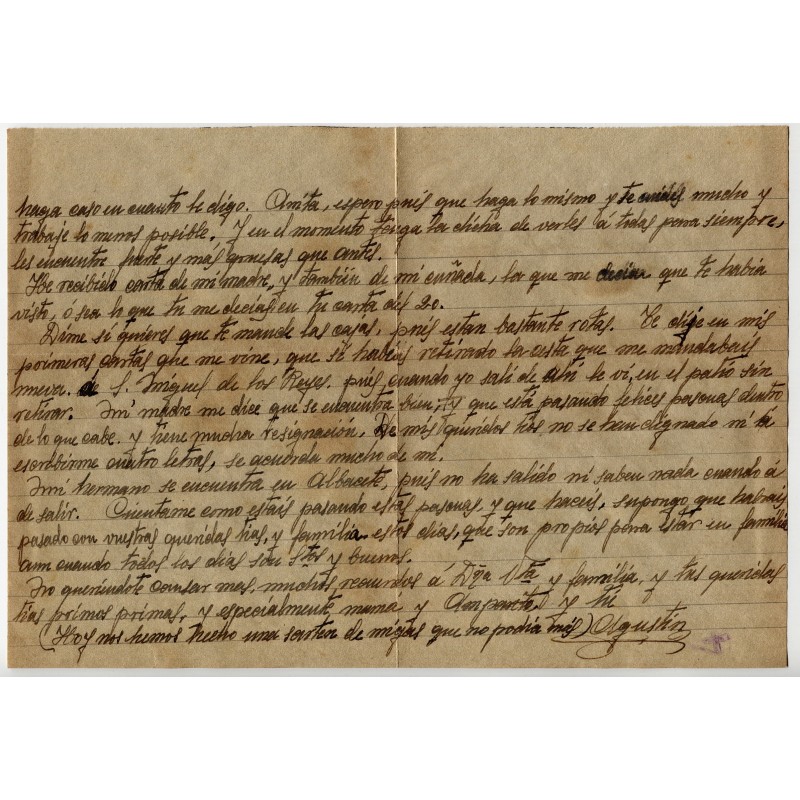 haga caso en cuanto le digo. Anita, espero pués que haga lo mismo y te cuides mucho y
trabaje lo menos posible. Y en el momento tenga la dicha de verles á todas para siempre,
les encuentre fuerte y más gruesas que antes.
He recibido carta de mi madre, y también de mi cuñada, la que me decia que te habia
visto, ó sea lo que tu me decias en tu carta del 20.
Dime si quieres que te mande las cosas, pués estan bastante rotas. Te dije en mis
primeras cartas que me vine, que si habias retirado la cesta que me mandabais
nueva de S. Miguel de los Reyes. pués cuando yo sali de ahi le vi, en el patio sin
retirar. Mi madre me dice que se encuentra bien, y que está pasando felices pascuas dentro
de lo que cabe. y tiene mucha resignación, De mis queridos tios no se han dignado ni á
escribirme cuatro letras, se acuerda mucho de mi.
Mi hermano se encuentra en Albacete, pués no ha salido ni saben nada cuando á
de salir. Cuentame como estais pasando estas pascuas y que haceis, supongo que habrais
pasado con vuestras queridas tias, y familia estos dias, que son propios para estar en familia
aun cuando todos los dias son Stos y buenos.
No queriéndote cansar mas, muchos recuerdos á Dña Vta y familia, y tus queridas
tias primos primas, y especialmente mama y Amparito, y tú
(Hoy nos hemos hecho una sarten de migas que no podia más) Agustin